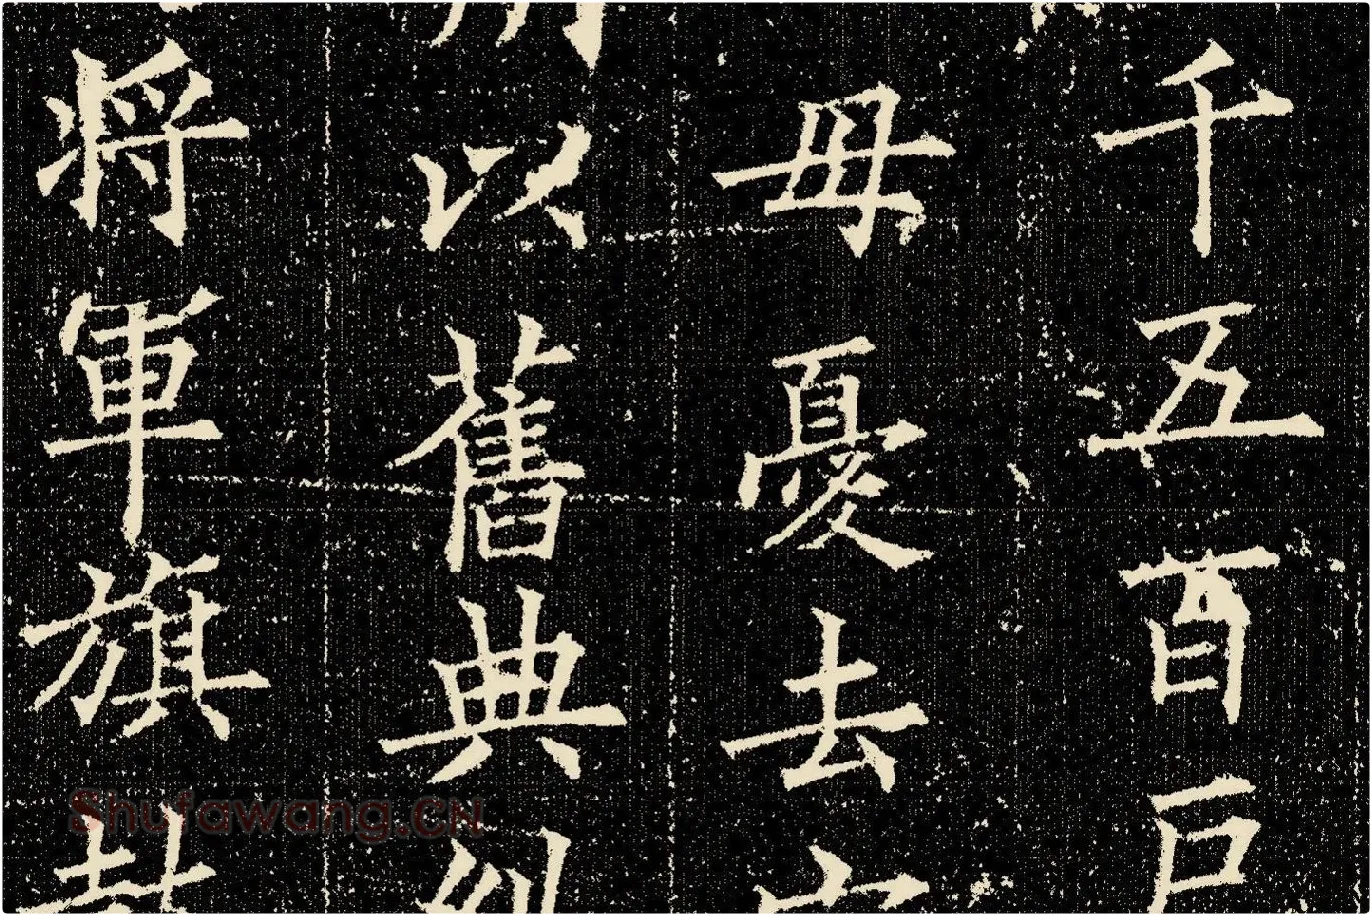 千五百戶
母憂去
以舊典
將軍旗
Shufawang.CN